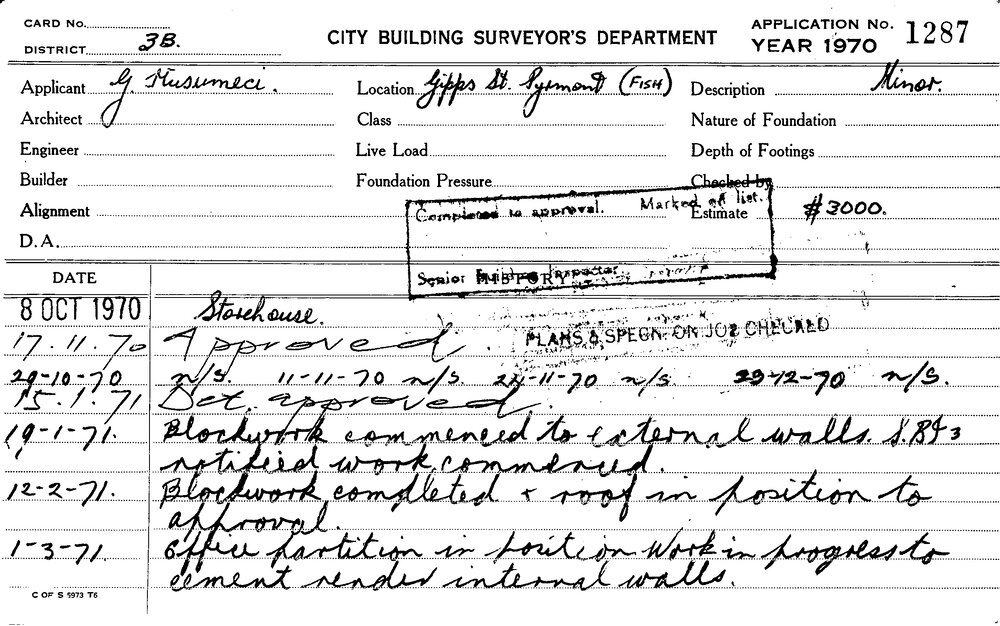 CARD No.
DISTRICT 3B.
CITY BUILDING SURVEYOR'S DEPARTMENT
APPLICATION No. 1287
YEAR 1970
Applicant G. Musumeci. Location Gipps St. Pyrmont (FISH) Description Minor.
Architect Class Nature of Foundation
Engineer Live Load Depth of Footings
Builder Foundation Pressure Checked by
Alignment Estimate $3000.
D.A.
Completed to approval. Marked off list.
Senior Building Inspector
HISTORY
DATE
8 OCT 1970 Storehouse.
PLANS & SPECN. ON JOB CHECKED
17.11.70 Approved.
29-10-70 n/s. 11-11-70 n/s. 24-11-70 n/s 29-12-70 n/s.
15.1.71 Det. approved.
19-1-71. Blockwork commenced to external walls. S.BI 3
notified work commenced.
12-2-71. Blockwork completed & roof in position to
approval.
1-3-71. Office partition in position Work in progress to
cement render internal walls.
C OF S 5973 T6